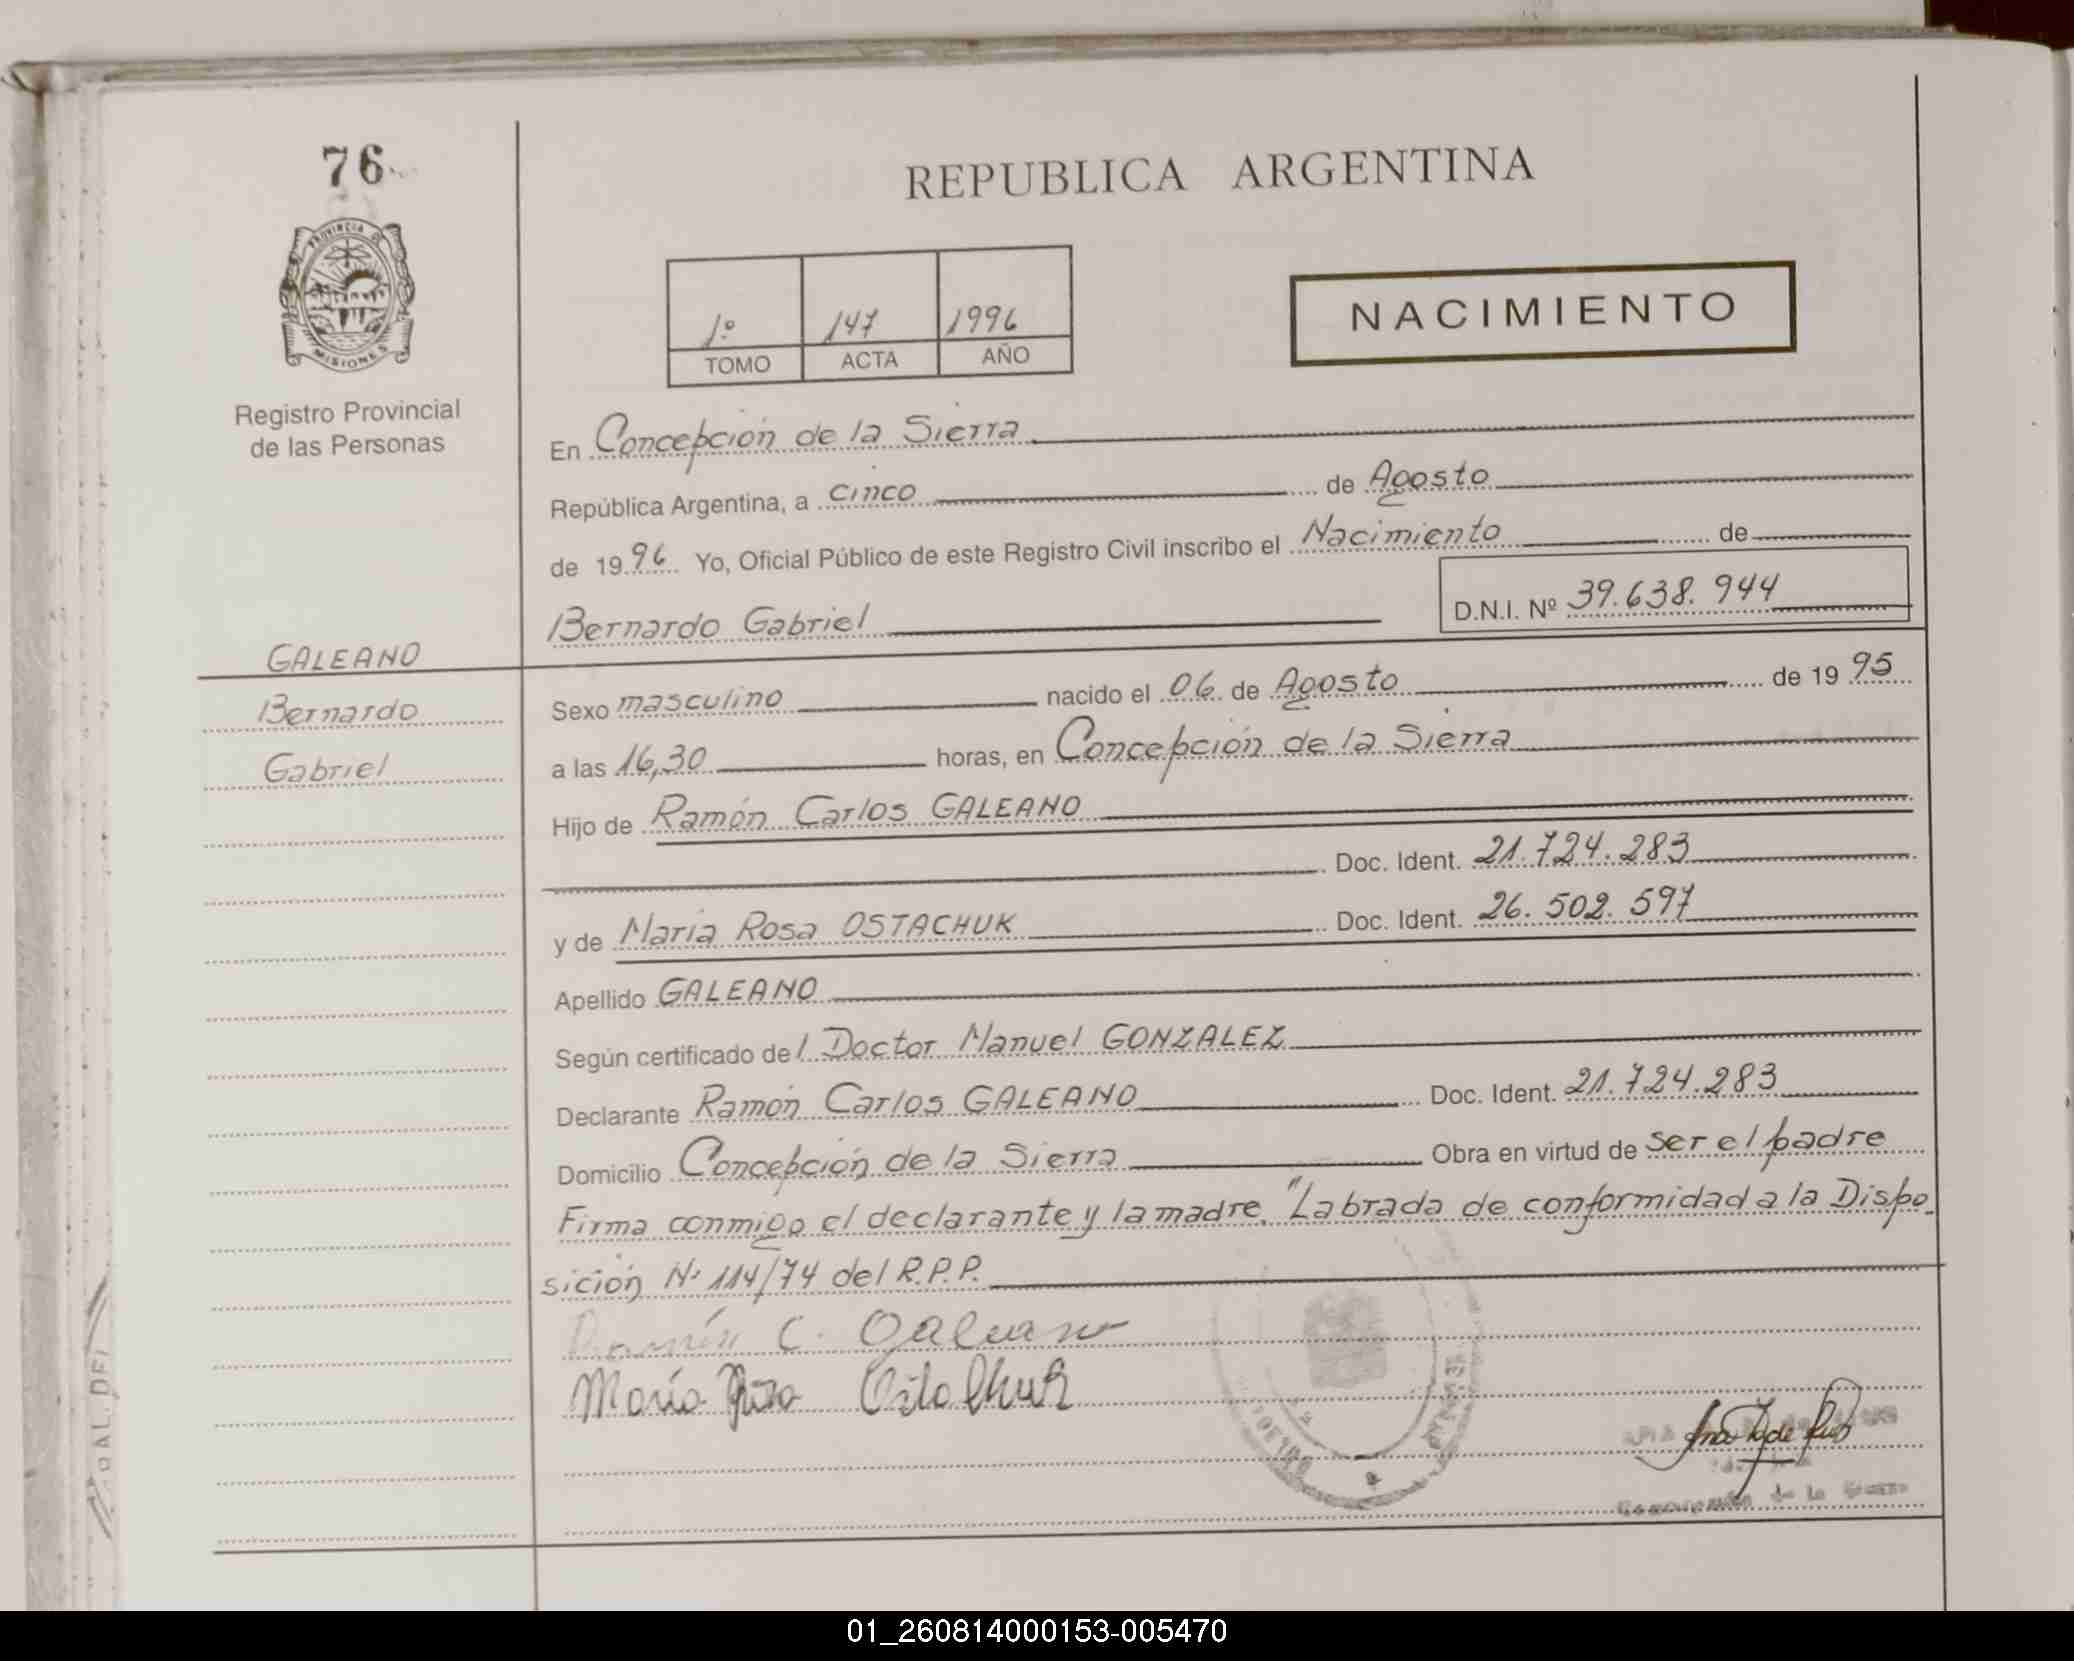 76
PROVINCIA DE
MISIONES
Registro Provincial
de las Personas
REPUBLICA ARGENTINA
1º 147 1996
TOMO ACTA AÑO
NACIMIENTO
En Concepción de la Sierra
República Argentina, a cinco de Agosto
de 1996 Yo, Oficial Público de este Registro Civil inscribo el Nacimiento de
Bernardo Gabriel D.N.I. Nº 39.638.944
GALEANO
Bernardo
Gabriel
Sexo masculino nacido el 06 de Agosto de 1995
a las 16,30 horas, en Concepción de la Sierra
Hijo de Ramón Carlos GALEANO
Doc. Ident. 21.724.283
y de María Rosa OSTACHUK Doc. Ident. 26.502.597
Apellido GALEANO
Según certificado del Doctor Manuel GONZALEZ
Declarante Ramón Carlos GALEANO Doc. Ident. 21.724.283
Domicilio Concepción de la Sierra Obra en virtud de ser el padre
Firma conmigo el declarante y la madre. "Labrada de conformidad a la Dispo-
sición Nº 114/74 del R.P.P.
Ramón C. Galeano
María Rosa
de la Sierra
01_260814000153-005470